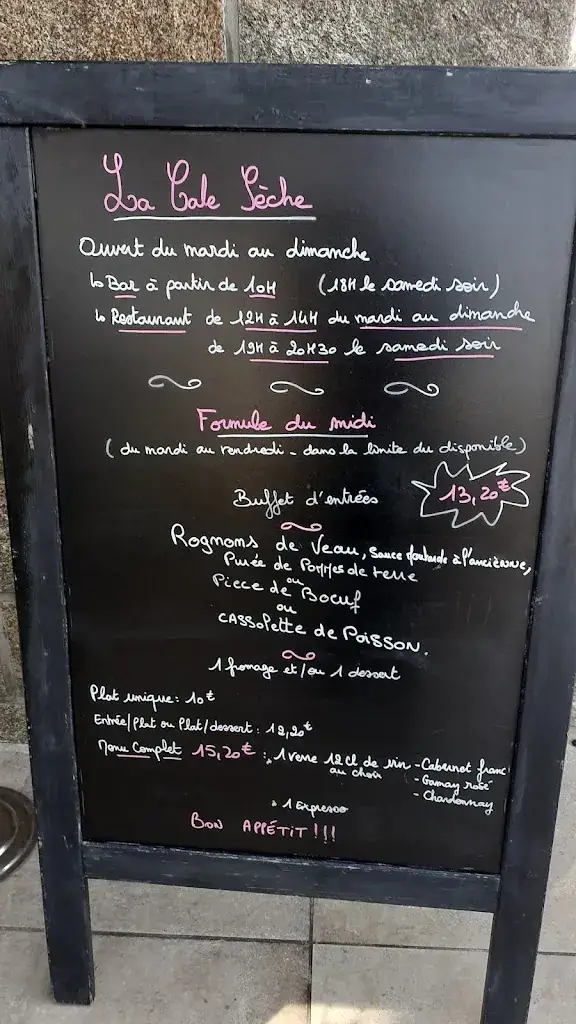 La Cale Sèche
Ouvert du mardi au dimanche
↳ Bar à partir de 10H (18H le samedi soir)
↳ Restaurant de 12H à 14H du mardi au dimanche
de 19H à 20H30 le samedi soir
Formule du midi
(du mardi au vendredi - dans la limite du disponible)
13,20€
Buffet d'entrées
Rognons de Veau, sauce moutarde à l'ancienne,
Purée de Pommes de terre
ou
Pièce de Boeuf
ou
CASSOLETTE de POISSON.
1 fromage et/ou 1 dessert
Plat unique: 10€
Entrée/Plat ou Plat/dessert: 12,20€
Menu Complet 15,20€ : 1 verre 12cl de vin - Cabernet franc
au choix - Gamay rosé
- Chardonnay
1 Expresso
BON APPÉTIT!!!